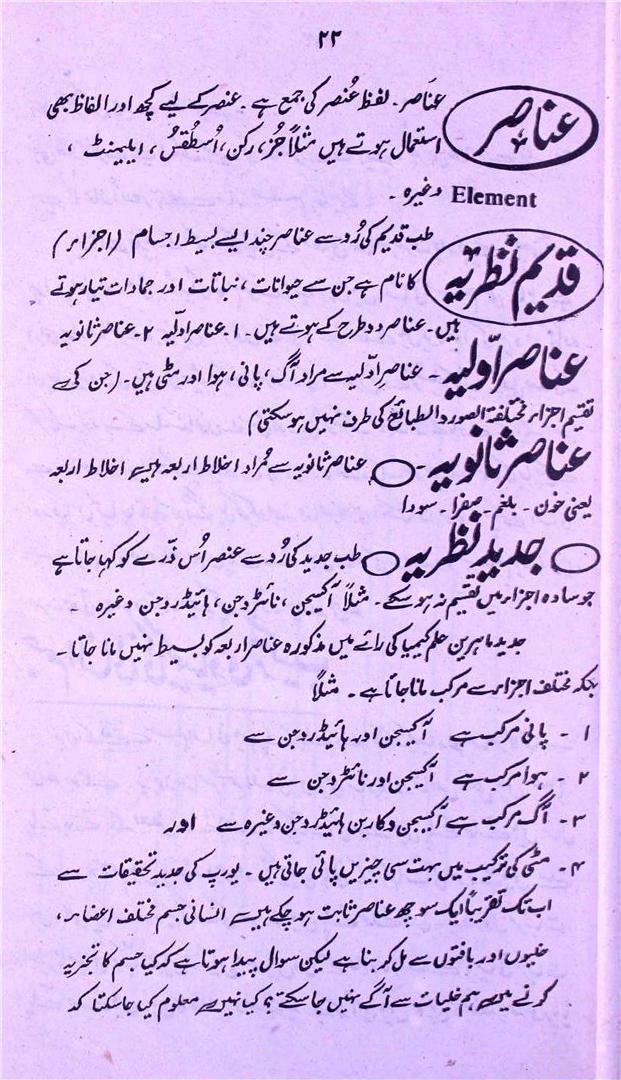 ۲۳
عناصر
عناصر۔ لفظ عُنصر کی جمع ہے۔ عنصر کے لیے کچھ اور الفاظ بھی
استعمال ہوتے ہیں مثلاً جُز، رکن، اُسطُقسُ، ایلیمینٹ،
Element وغیرہ۔
قدیم نظریہ
طب قدیم کی رُو سے عناصر چند ایسے بسیط اجسام (اجزاء)
کا نام ہے جن سے حیوانات، نباتات اور جمادات تیار ہوتے
ہیں۔ عناصر دو طرح کے ہوتے ہیں۔ ۱۔ عناصر اوّلیہ ۲۔ عناصر ثانویہ
عناصر اوّلیہ۔ عناصرِ اوّلیہ سے مراد آگ، پانی، ہوا اور مٹی ہیں۔ (جن کی
تقیم اجزاء مختلفۃ الصور و الطبائع کی طرف نہیں ہوسکتی)
عناصر ثانویہ۔ عناصر ثانویہ سے مُراد اخلاط اربعہ ہیں اخلاط اربعہ
یعنی خون۔ بلغم۔ صفرا۔ سودا
جدید نظریہ طب جدید کی رُو سے عنصر اُس ذرّے کو کہا جاتا ہے
جو سادہ اجزاء میں تقیم نہ ہو سکے۔ مثلاً آکیجن، نائٹروجن، ہائیڈروجن وغیرہ۔
جدید ماہرین علم کیمیا کی رائے میں مذکورہ عناصر اربعہ کو بسیط نہیں مانا جاتا۔
بلکہ مختلف اجزاء سے مرکب مانا جاتا ہے۔ مثلاً
۱۔ پانی مرکب ہے آکیجن اور ہائیڈروجن سے
۲۔ ہوا مرکب ہے آکیجن اور نائٹروجن سے
۳۔ آگ مرکب ہے آکیجن و کاربن ہائیڈروجن وغیرہ سے اور
۴۔ مٹی کی ترکیب میں بہت سی چیزیں پائی جاتی ہیں۔ یورپ کی جدید تحقیقات سے
اب تک تقریباً ایک سو چھ عناصر ثابت ہو چکے ہیں انسانی جسم مختلف اعضاء،
خلیوں اور بافتوں سے مل کر بنا ہے لیکن سوال پیدا ہوتا ہے کہ کیا جسم کا تجزیہ
کرنے میں ہم خلیات سے آگے نہیں جا سکتے؟ کیا نہیں معلوم کیا جا سکتا کہ